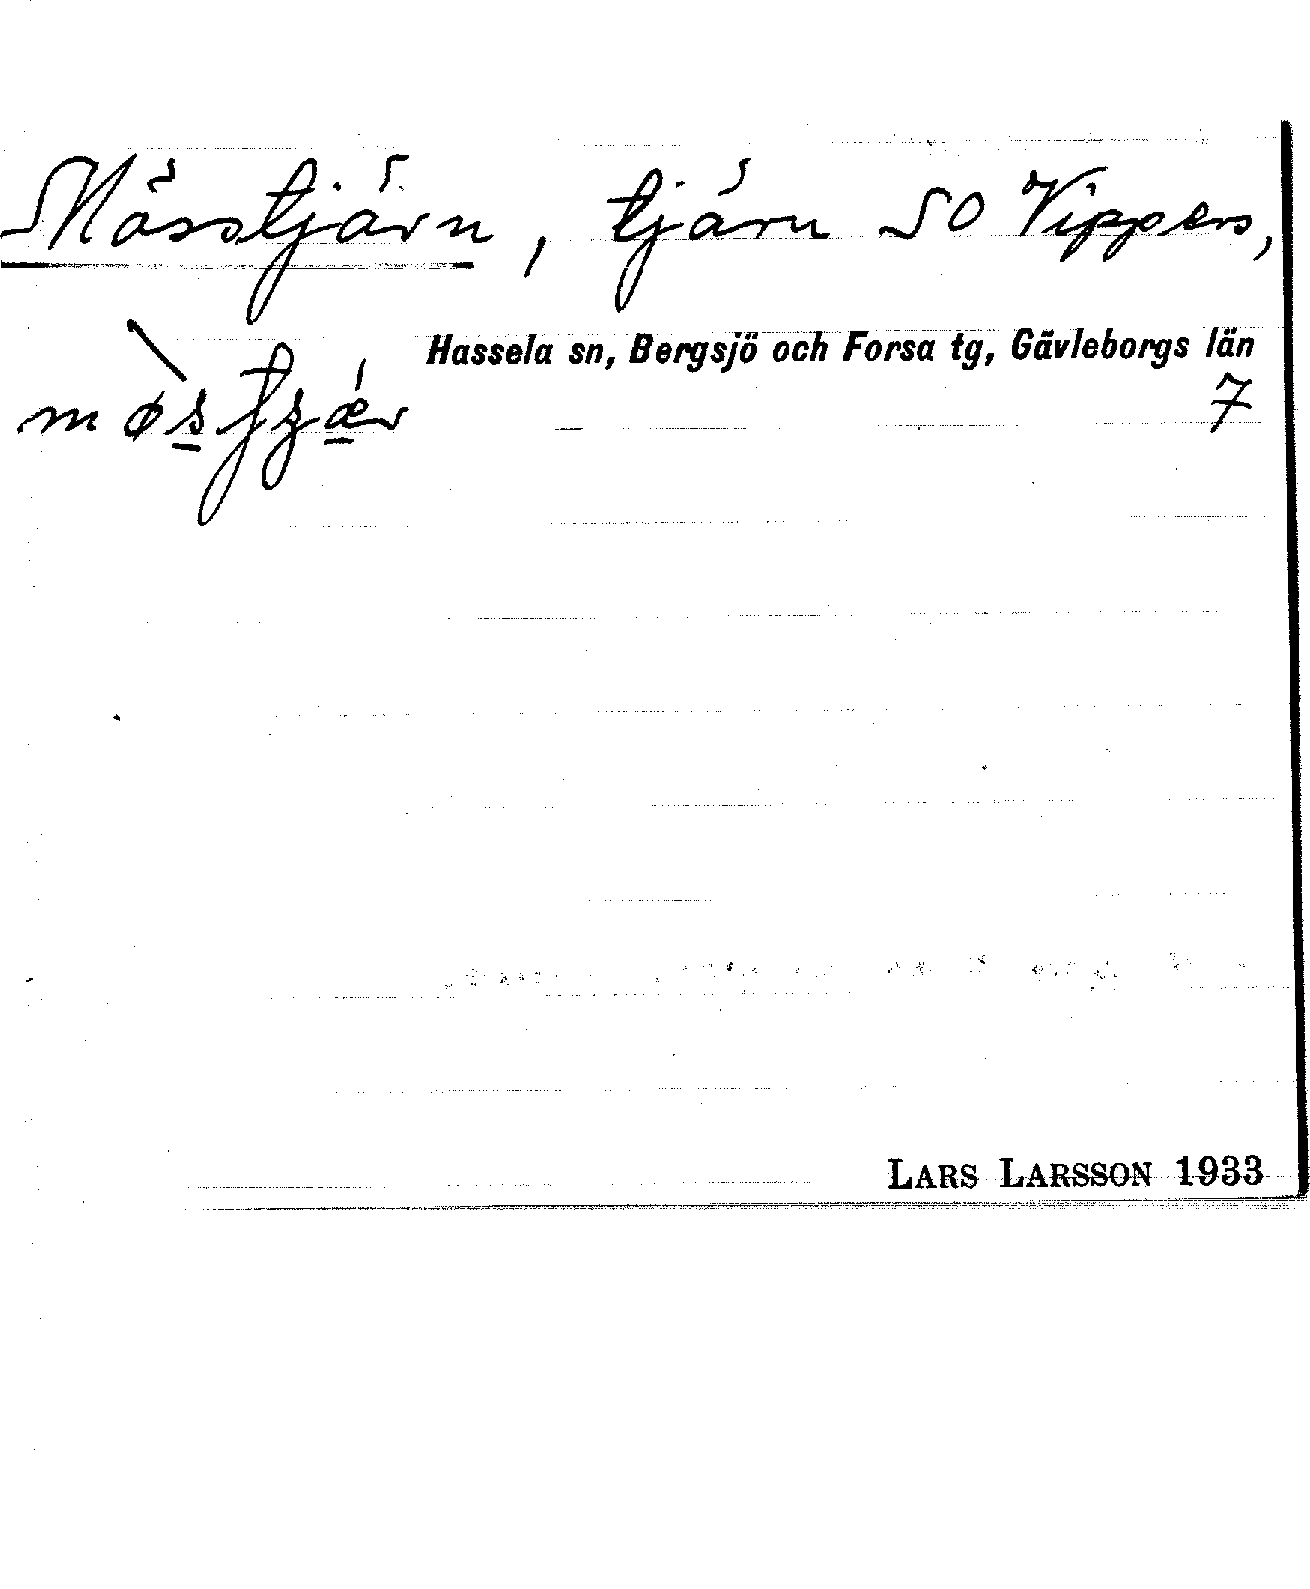 Mösstjärn, tjärn SO Vippers,
Hassela sn, Bergsjö och Forsa tg, Gävleborgs län
7
LARS LARSSON 1933